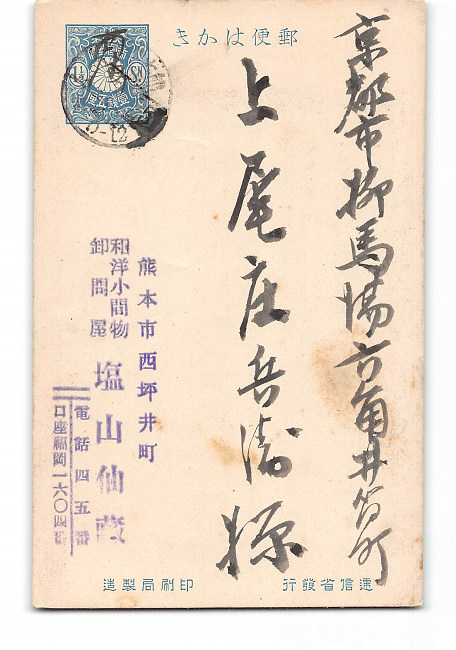 郵便はかき
京都市柳馬場六角井筒町
上尾庄兵衛様
熊本市西坪井町
和洋小間物
卸問屋
塩山仙蔵
電話四五番
口座福岡一六〇四番
逓信省發行
印刷局製造